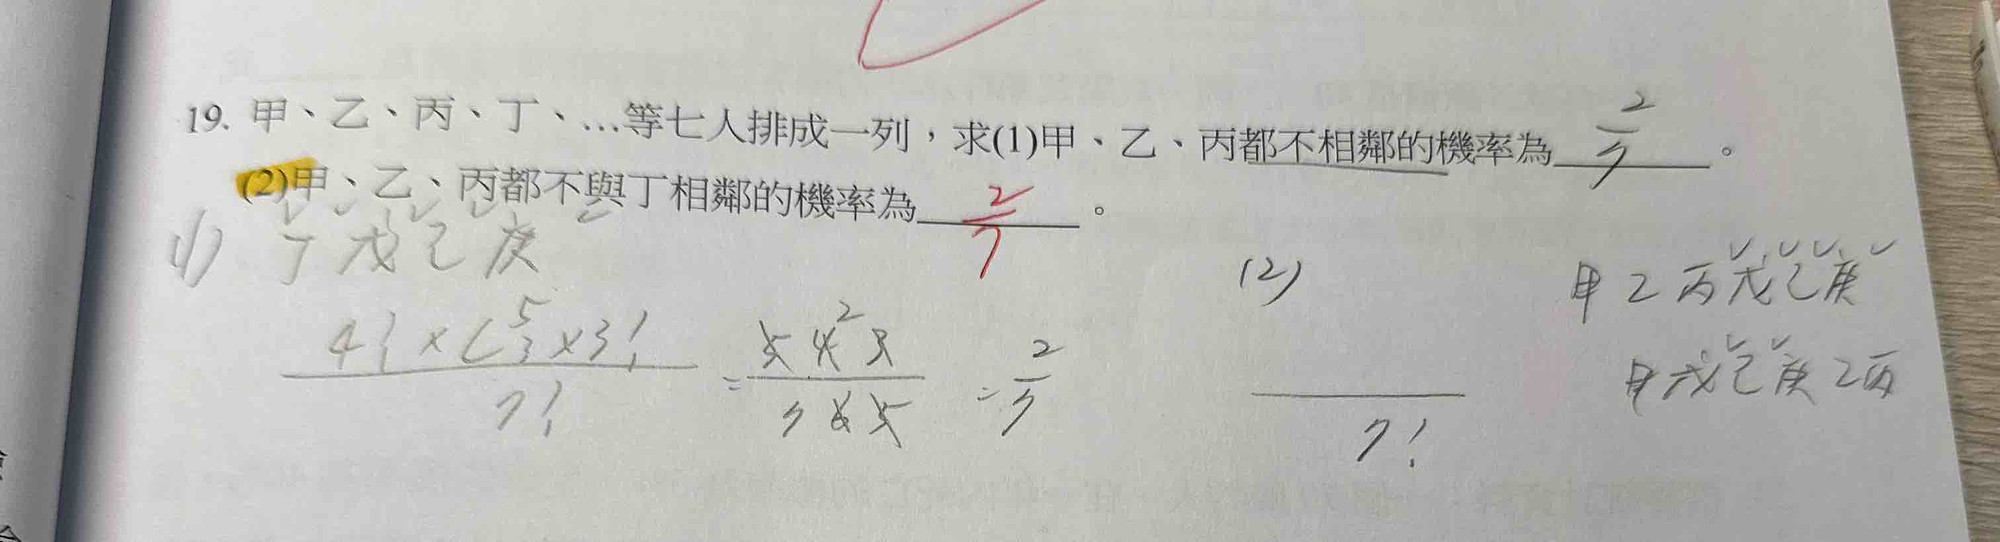 19. 甲、乙、丙、丁、…等七人排成一列，求(1)甲、乙、丙都不相鄰的機率為 2/7 。
(2)甲、乙、丙都不與丁相鄰的機率為 2/7 。
(1) 丁戊己庚
4! × C⁵₃ × 3! / 7! = 5 4² 3 / 7 6 5 = 2/7
(2) 甲乙丙戊己庚
甲戊己庚乙丙
7!